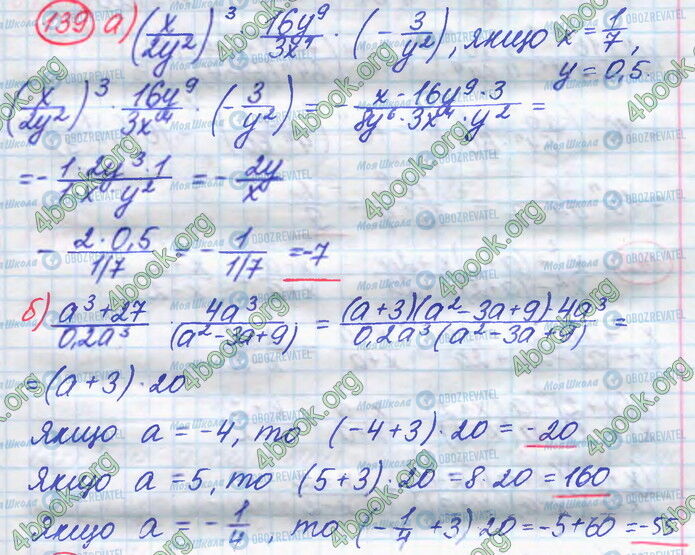 139 а) (x/2y²)³ · 16y⁹/3x⁴ · (-3/y²), якщо x = 1/7,
y = 0,5
(x/2y²)³ · 16y⁹/3x⁴ · (-3/y²) = - x · 16y⁹ · 3/8y⁶ · 3x⁴ · y² =
= - 1 · 2y³ · 1/1 · x · y² = - 2y/x
- 2 · 0,5/1/7 = - 1/1/7 = -7
б) a³ + 27/0,2a³ · 4a³/(a² - 3a + 9) = (a + 3)(a² - 3a + 9) 4a³/0,2a³ (a² - 3a + 9) =
= (a + 3) · 20
Якщо a = -4, то (-4 + 3) · 20 = -20
Якщо a = 5, то (5 + 3) · 20 = 8 · 20 = 160
Якщо a = - 1/4, то (- 1/4 + 3) 20 = -5 + 60 = -55
4book.org
МояШкола
OBOZREVATEL